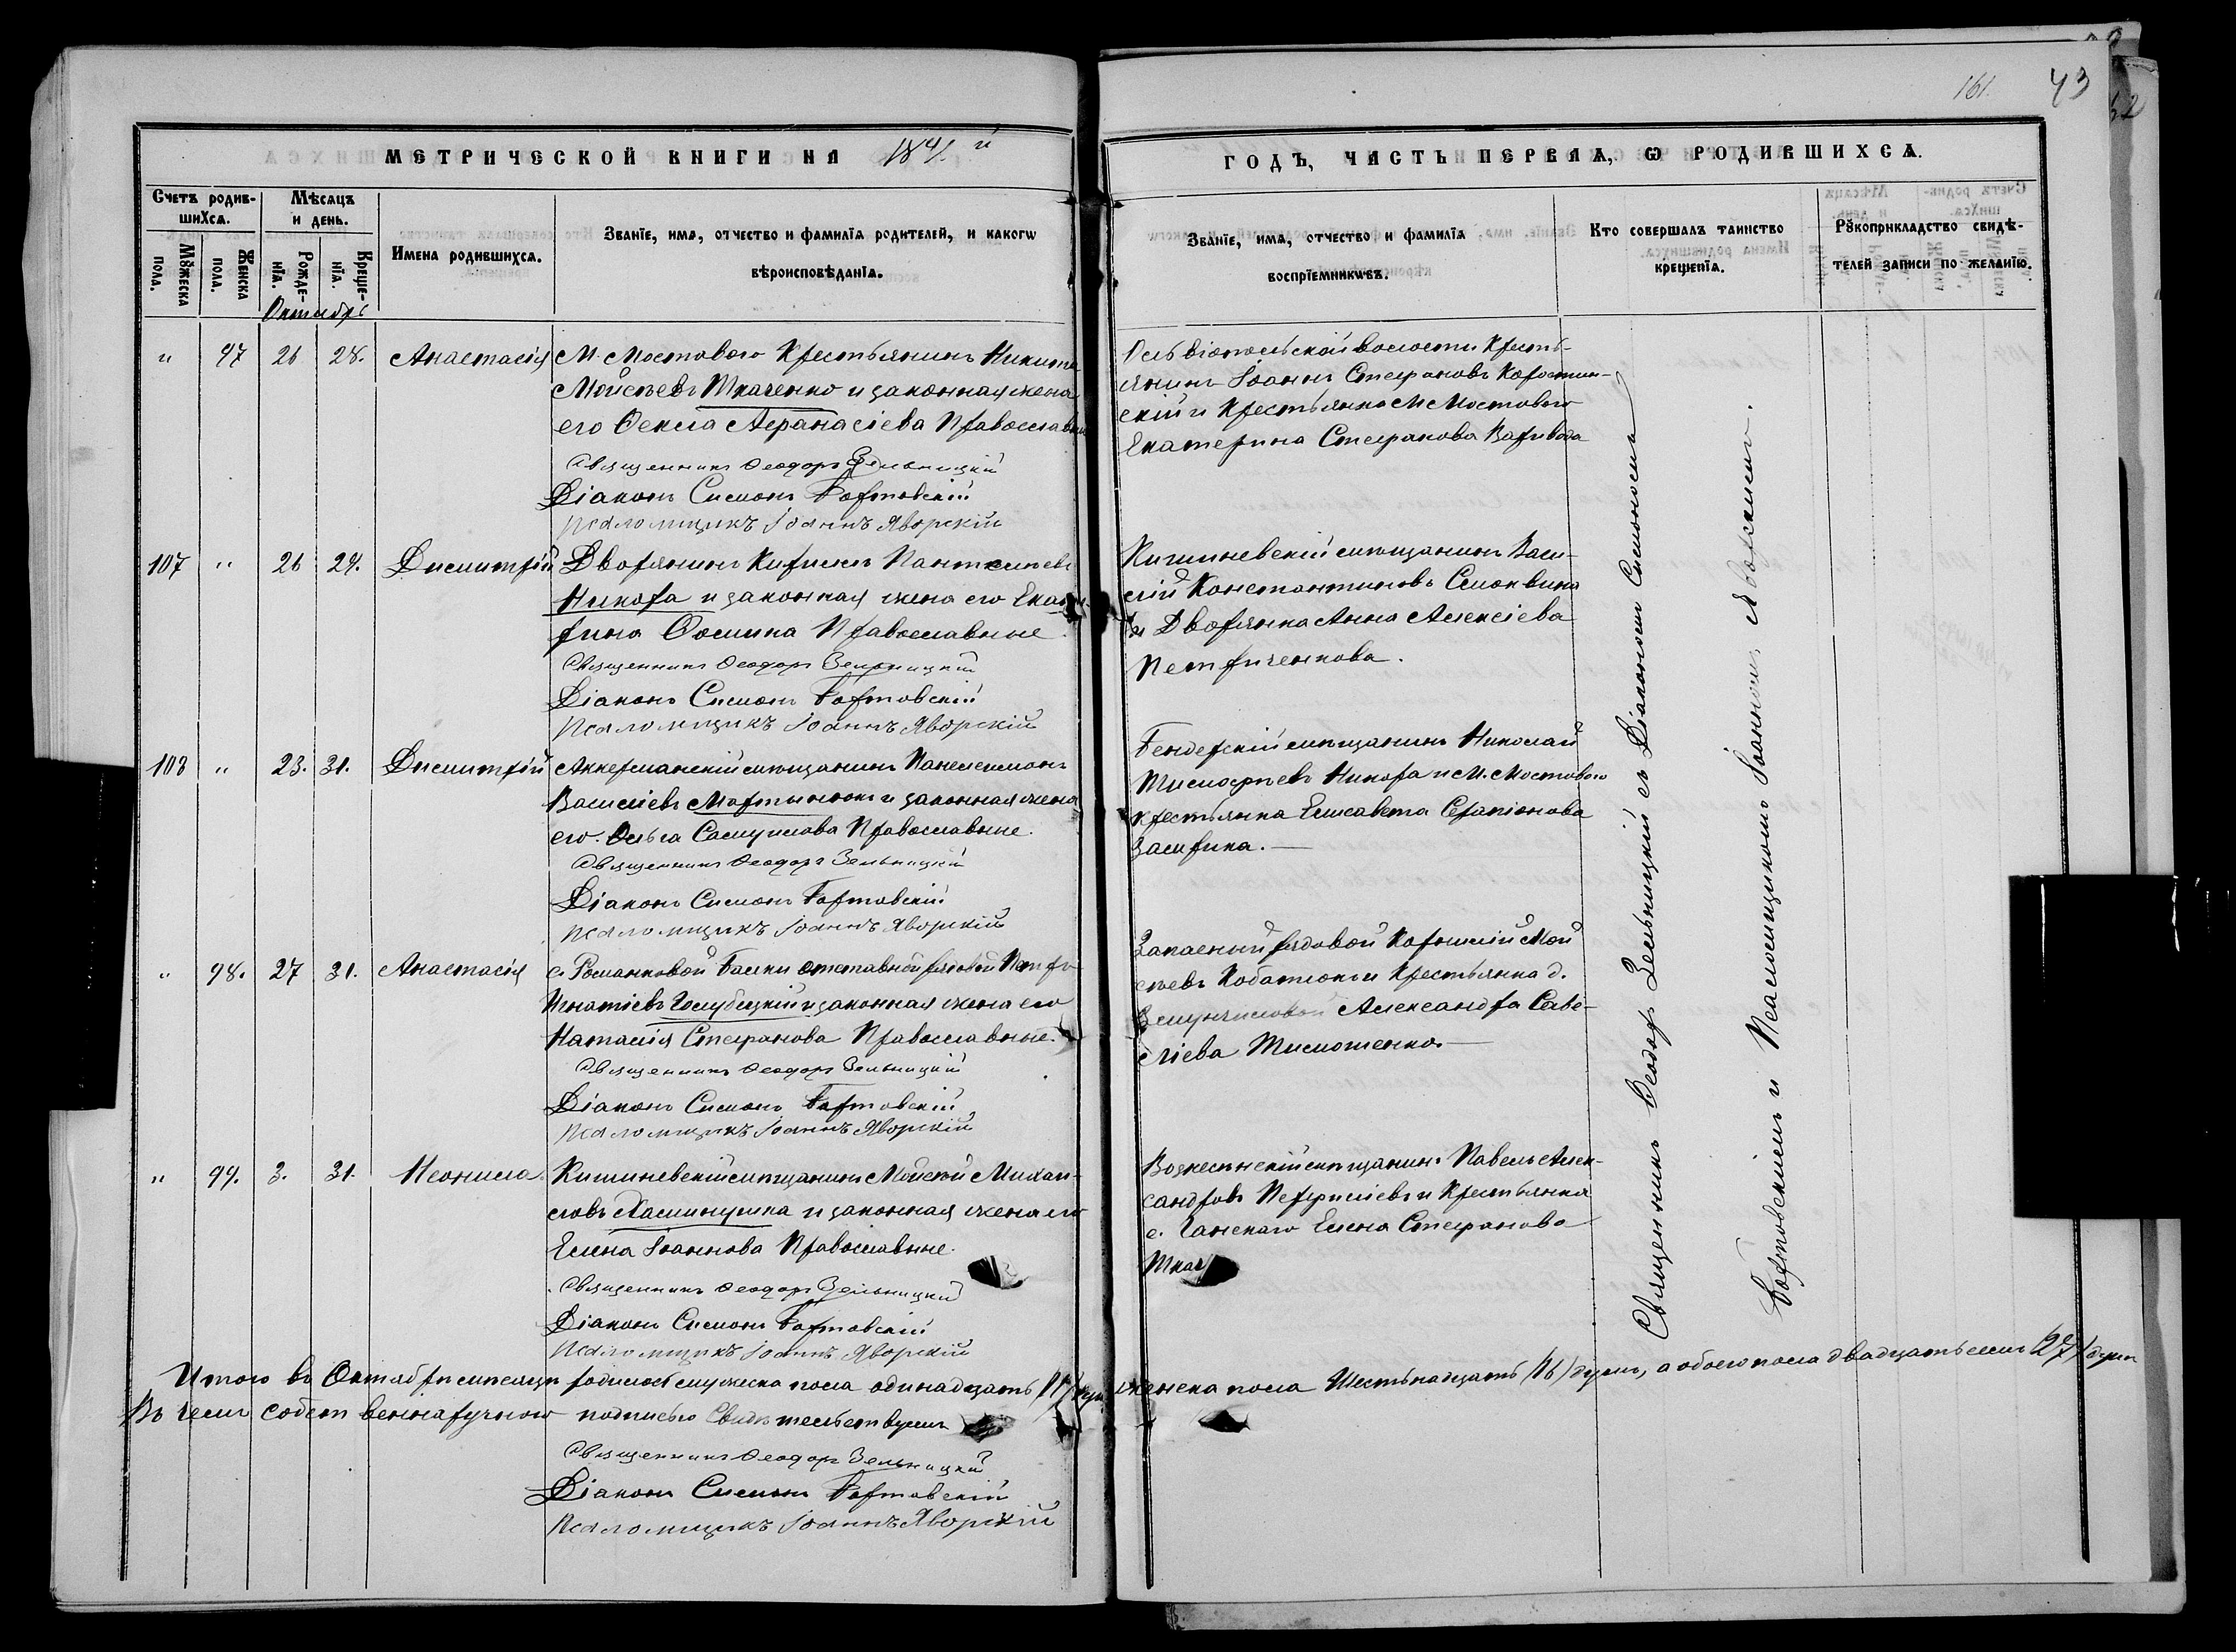 161. 43
МЕТРИЧЕСКОЙ КНИГИ НА 1891 й
ГОДЪ, ЧАСТЬ ПЕРВАЯ, Ѡ РОДИВШИХСѦ.
Счетъ родив-
шихсѧ.
Мѣсѧцъ
и день.
Мꙋжеска
пола.
Женска
пола.
Рожде-
нїѧ.
Креще-
нїѧ.
Имена родившихсѧ.
Званїе, имѧ, отчество и фамилїѧ родителей, и какогѡ
вѣроисповѣданїѧ.
Званїе, имѧ, отчество и фамилїѧ
воспрїемникѡвъ.
Кто совершалъ таинство
крещенїѧ.
Рꙋкоприкладство свидѣ-
телей записи по желанїю.
Октябрь
" 97 26 28. Анастасія М. Мостового Крестьянинъ Никита
Мойсеевъ Ткаченко и законная жена
его Фекла Афанасіева Православные
Священникъ Ѳеодоръ Зельницкій
Діаконъ Симонъ Бортовскій
Псаломщикъ Іоаннъ Яворскій
Ольвіопольской волости Кресть-
янинъ Іоаннъ Стефановъ Коростин-
скій и Крестьянка М Мостового
Екатерина Стефанова Варивода
107 " 26 29. Димитрій Дворянинъ Кирилъ Пантелеевъ
Никора и законная жена его Екате-
рина Фомина Православные
Священникъ Ѳеодоръ Зельницкій
Діаконъ Симонъ Бортовскій
Псаломщикъ Іоаннъ Яворскій
Кишиневскій мѣщанинъ Васи-
лій Константиновъ Смоквина
и Дворянка Анна Алексіева
Петриченкова.
108 " 23. 31. Димитрій Аккерманскій мѣщанинъ Панелеимонъ
Василіевъ Мартынюкъ и законная жена
его Ольга Самуилова Православные.
Священникъ Ѳеодоръ Зельницкій
Діаконъ Симонъ Бортовскій
Псаломщикъ Іоаннъ Яворскій
Бендерскій мѣщанинъ Николай
Тимофеевъ Никора и М. Мостового
крестьянка Елисавета Серапіонова
" 98. 27 31. Анастасія с. Романковой Балки отставной рядовой Петръ
Игнатіевъ Голубецкій и законная жена его
Наталія Стефанова Православные.
Священникъ Ѳеодоръ Зельницкій
Діаконъ Симонъ Бортовскій
Псаломщикъ Іоаннъ Яворскій
Запасный рядовой Корнилій Мой
сеевъ и Крестьянка д.
Александра Саве-
лієва Тимошенко.
" 99. 3. 31. Неонила. Кишиневскій мѣщанинъ Мойсей Михаи-
ловъ и законная жена его
Елена Іоаннова Православные.
Священникъ Ѳеодоръ Зельницкій
Діаконъ Симонъ Бортовскій
Псаломщикъ Іоаннъ Яворскій
Вознесенскій мѣщанинъ Павелъ Алек-
сандровъ и Крестьянка
с. Ганскаго Елена Стефанова
Ткач
Священникъ Ѳеодоръ Зельницкій съ Діакономъ Симономъ
Бортовскимъ и Псаломщикомъ Іоанномъ Яворскимъ.
Итого въ Октябрѣ мѣсяцѣ родилось мужеска пола одинадцать /11/ душъ женска пола Шестьнадцать /16/ душъ, а обоего пола двадцать семь /27/ душъ
Въ чемъ собственноручною подписью Свидѣтельствуемъ
Священникъ Ѳеодоръ Зельницкій
Діаконъ Симонъ Бортовскій
Псаломщикъ Іоаннъ Яворскій